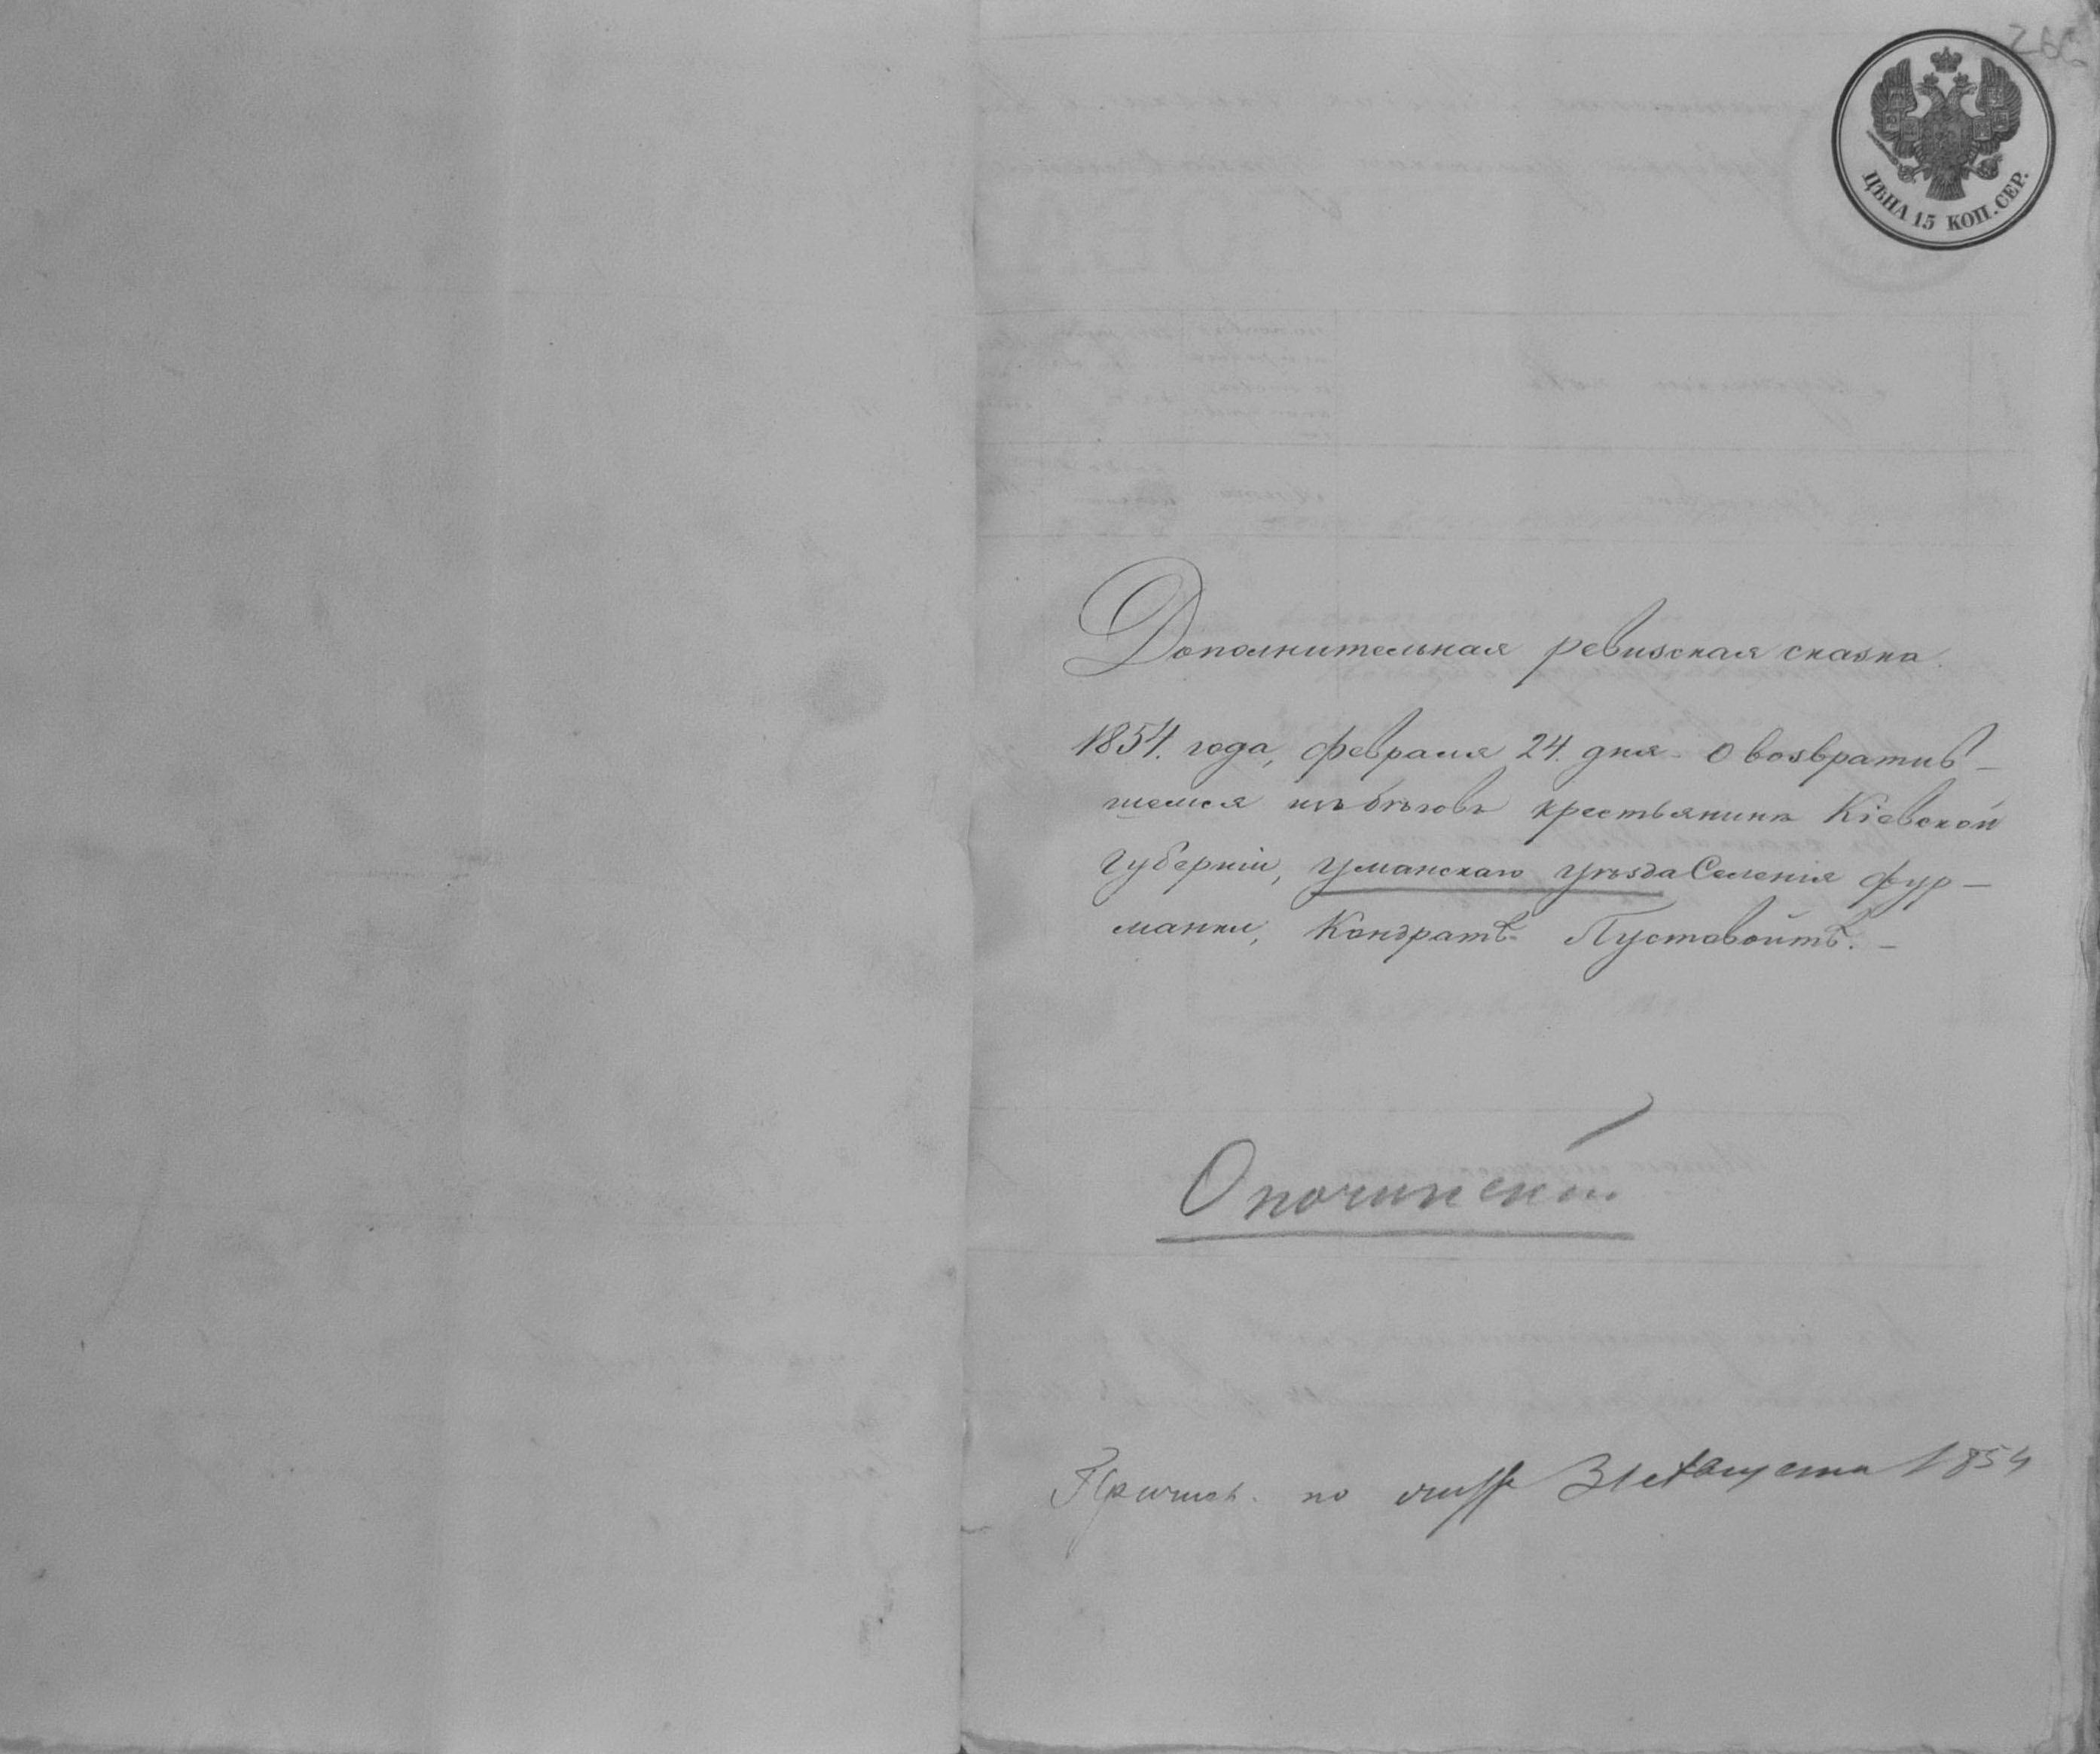 ЦѢНА 15 КОП. СЕР.
Дополнительная ревизская сказка
1854. года, февраля 24. дня. О возвратив-
шемся изъ бѣговъ крестьянинѣ Кіевской
Губерніи, Уманскаго Уѣзда Селенія Фур-
манки, Кондратѣ Пустовойтѣ. –
Опочинской
по 31 Августа 1854